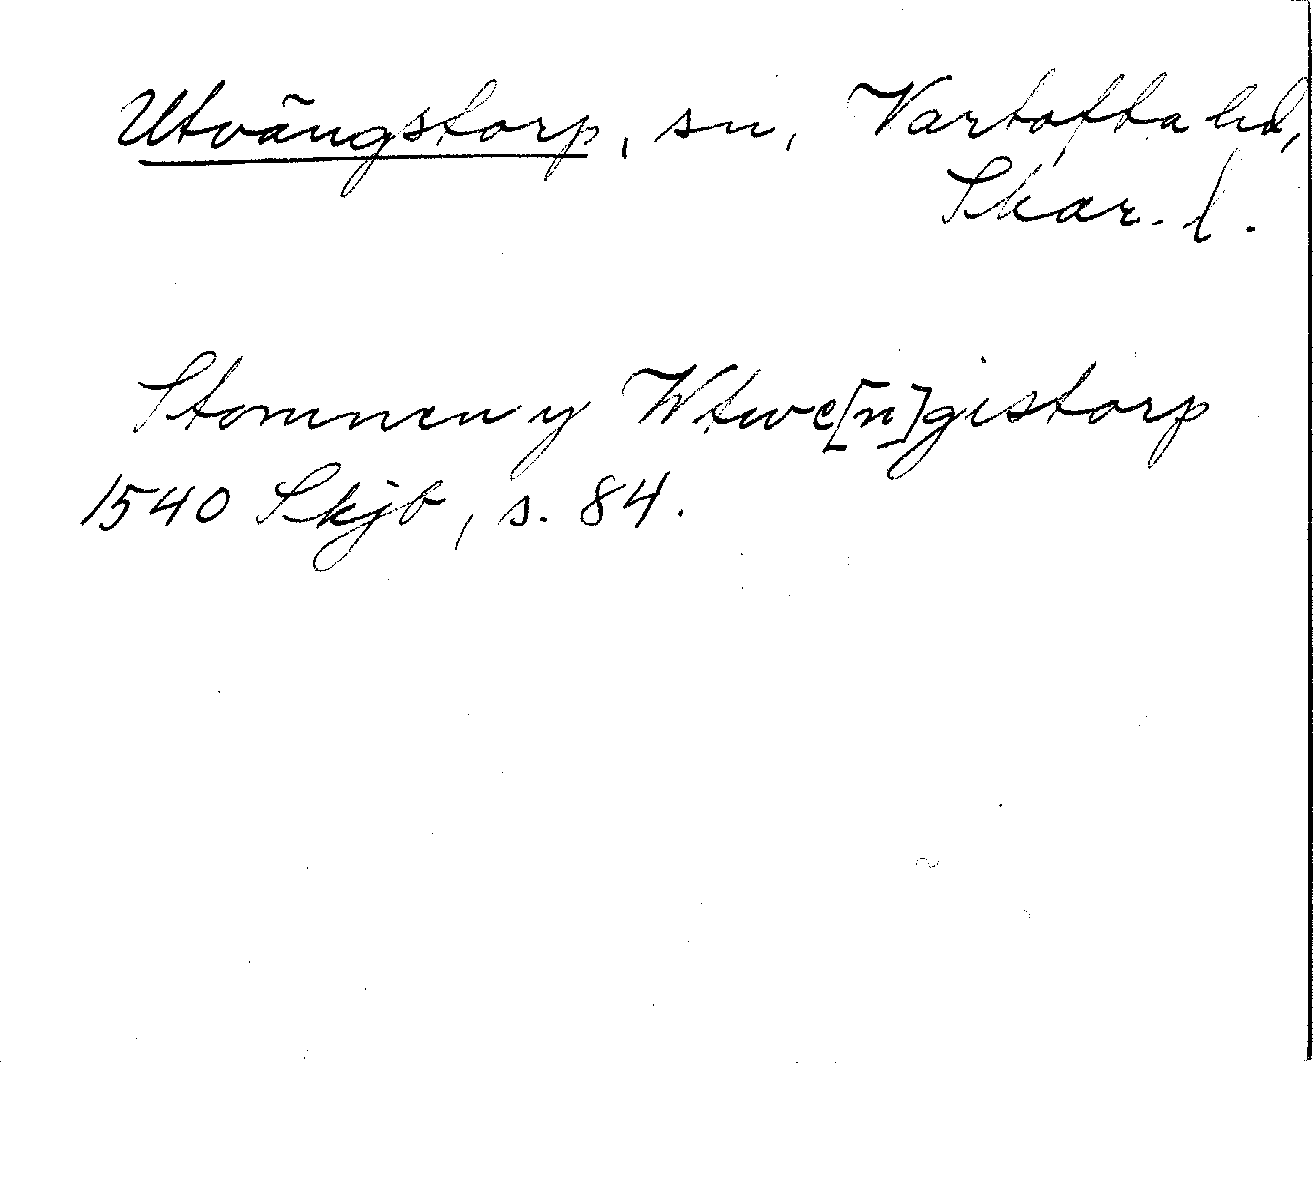 Utvängstorp, sn, Vartofta hd,
Skar. l.
Stommen y Wtwe[n]gistorp
1540 Skjb, s. 84.